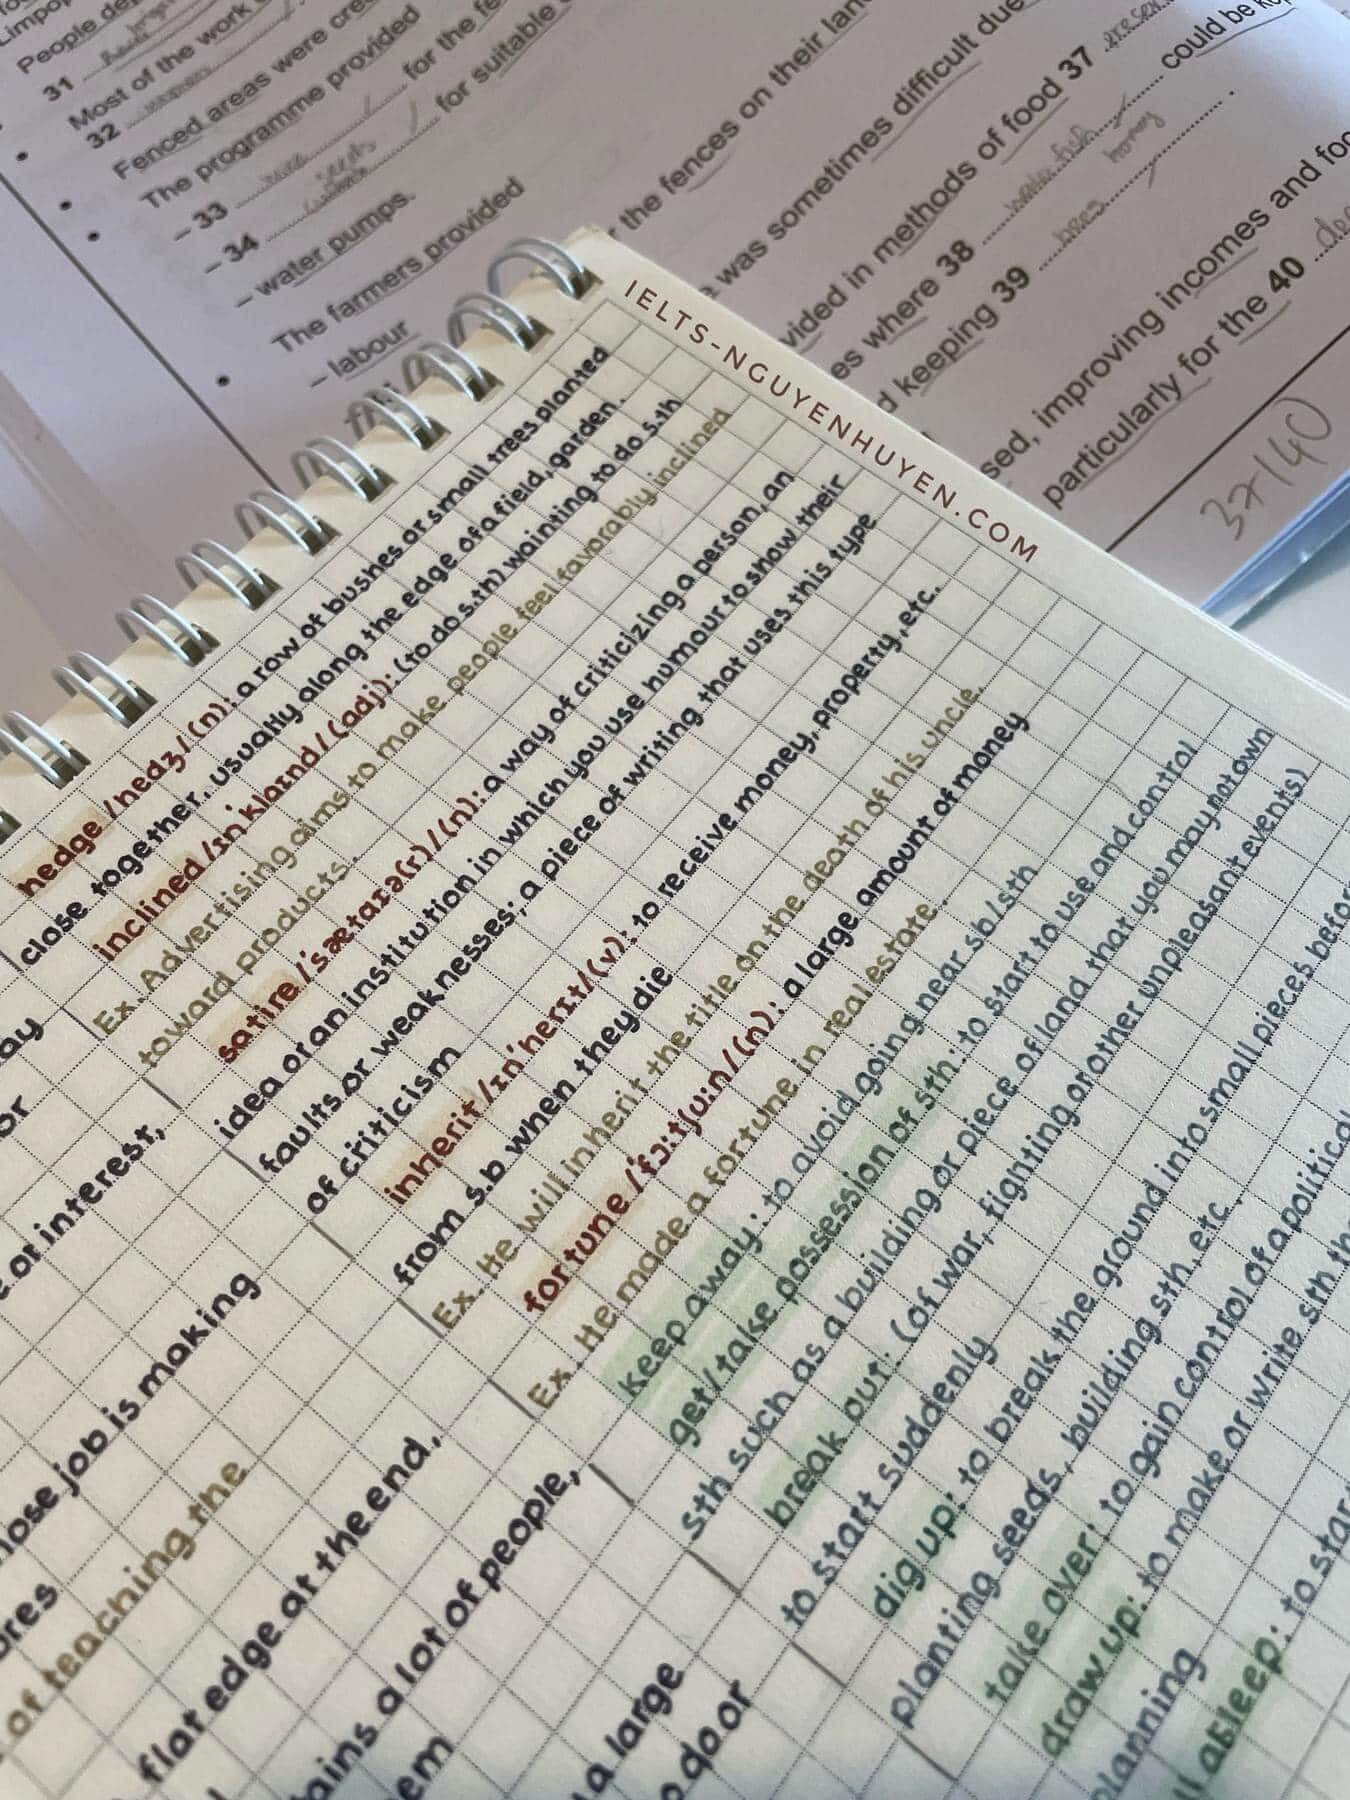 Limpop
People dep
31
Most of the work
32
Fenced areas were cre
The programme provided
– 33 wire for the fe
– 34 seeds for suitable
– water pumps.
The farmers provided
– labour
the fences on their lan
was sometimes difficult due
vided in methods of food 37
es where 38 could be kep
d keeping 39 bees
honey
sed, improving incomes and foo
particularly for the 40
37/40
IELTS-NGUYENHUYEN.COM
hedge /hedʒ/ (n): a row of bushes or small trees planted
close together, usually along the edge of a field, garden.
inclined /ɪnˈklaɪnd/ (adj): (to do s.th) wainting to do s.th
Ex. Advertising aims to make people feel favorably inclined
toward products.
satire /ˈsætaɪə(r)/ (n): a way of criticizing a person, an
idea or an institution in which you use humour to show their
faults or weaknesses; a piece of writing that uses this type
of criticism
inherit /ɪnˈherɪt/ (v): to receive money, property, etc.
from s.b when they die
Ex. He will inherit the title on the death of his uncle.
fortune /ˈfɔːtʃuːn/ (n): a large amount of money
Ex. He made a fortune in real estate.
keep away: to avoid going near sb/sth
get/take possession of sth: to start to use and control
sth such as a building or piece of land that you may not own
break out: (of war, fighting or other unpleasant events)
to start suddenly
dig up: to break the ground into small pieces before
planting seeds, building sth, etc.
take over: to gain control of a political
draw up: to make or write sth th
planning
asleep: to star
ay
or
e or interest,
hose job is making
ores
of teaching the
flat edge at the end,
ains a lot of people,
em
a large
o do or